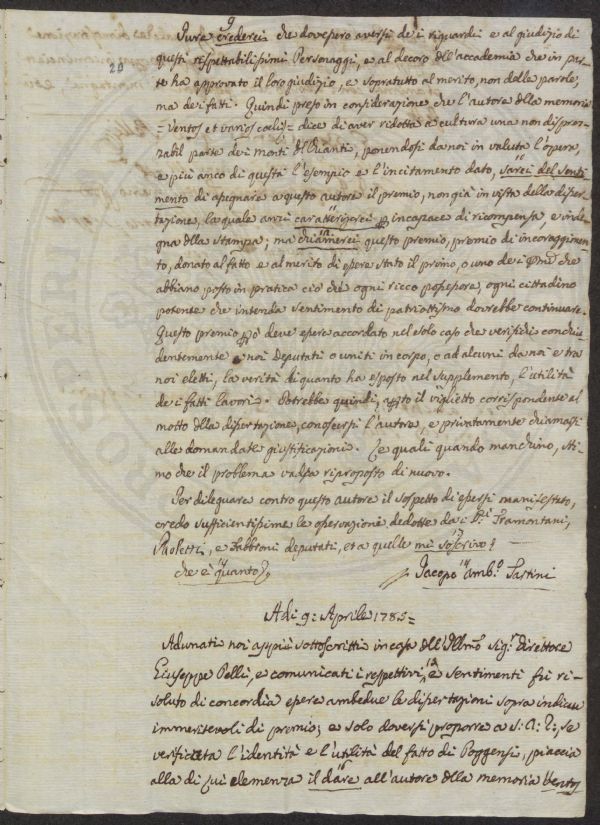 9
Pure crederei che dovessero aversi de i riguardi e al giudizio di
20
questi rispettabilissimi Personaggi, e al decoro dell'accademia che in par-
te ha approvato il loro giudizio, e sopratutto al merito, non delle parole,
ma de i fatti. Quindi preso in considerazione che l'autore della memoria
= Ventos et varios caeli = dice di aver ridotta a cultura una non disprez-
zabil parte de i monti del Chianti, ponendosi da noi in valuta l'opera,
e più anco di questa l'esempio e l'incitamento dato, sarei del senti-
mento di assegnare a questo autore il premio, non già in vista della disser-
tazione, la quale anzi caratterizerei per incapace di ricompensa, e inde-
gna della stampa; ma chiamerei questo premio, premio di incoraggimen-
to, donato al fatto e al merito di essere stato il primo, o uno de i primi che
abbiano posto in pratica ciò che ogni ricco possessore, ogni cittadino
potente che intenda sentimento di patriottismo dovrebbe continuare.
Questo premio però deve essere accordato nel solo caso che verifichi conclu-
dentemente a noi Deputati o uniti in corpo, o ad alcuni da noi e tra
noi eletti, la verità di quanto ha esposto nel supplemento, l'utilità
de i fatti lavori. Potrebbe quindi, aperto il viglietto corrispondente al
motto della dissertazione, conoscersi l'autore, e privatamente chiamarsi
alle domandate giustificazioni. Le quali quando manchino, sti-
mo che il problema vadia riproposto di nuovo.
Per dileguare contro questo autore il sospetto di essersi manifestato,
credo sufficientissime le osservazioni dedotte da i SS.ri Tramontani,
Paoletti, e Fabbroni deputati, et a quelle mi soscrivo;
che è quanto &.
Jacopo Amb.o Tartini
Adi 9: Aprile 1785 =
Adunati noi appiè sottoscritti in casa dell'Illmo Sig.r Direttore
Giuseppe Pelli, e comunicati i respettivi sentimenti fu ri-
soluto di concordia essere ambedue le dissertazioni sopra indicate
immeritevoli di premio; e solo doversi proporre a S: A: R: se
verificata l'identità e l'utilità del fatto di Poggensi, piaccia
alla di lui clemenza il dare all'autore della memoria Ventos